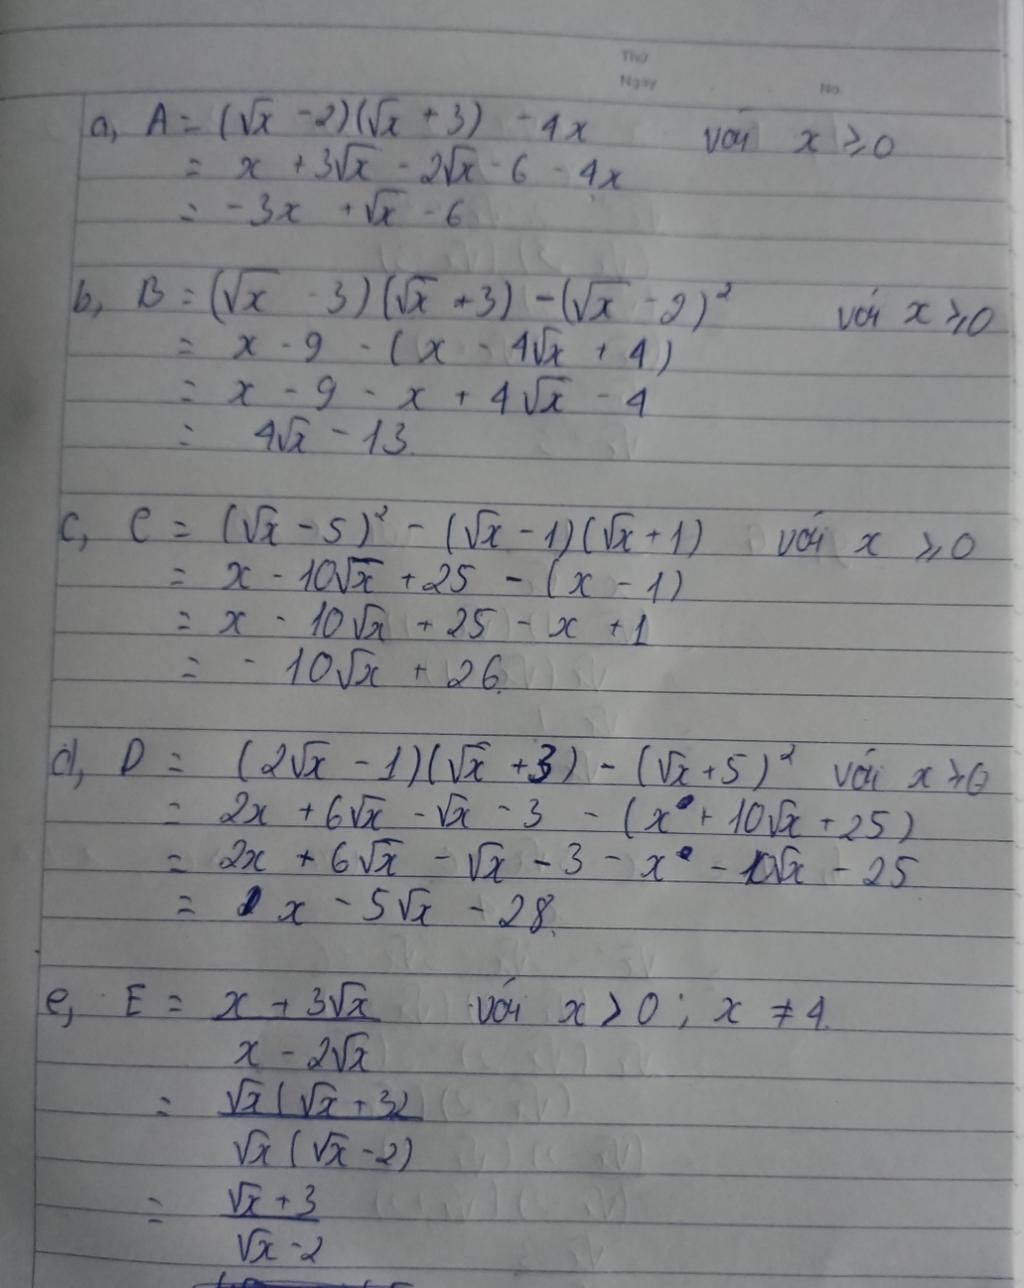 Thứ
Ngày No.
a, A = (√x - 2)(√x + 3) - 4x với x ≥ 0
= x + 3√x - 2√x - 6 - 4x
= -3x + √x - 6
b, B = (√x - 3)(√x + 3) - (√x - 2)² với x ≥ 0
= x - 9 - (x - 4√x + 4)
= x - 9 - x + 4√x - 4
= 4√x - 13
c, C = (√x - 5)² - (√x - 1)(√x + 1) với x ≥ 0
= x - 10√x + 25 - (x - 1)
= x - 10√x + 25 - x + 1
= - 10√x + 26
d, D = (2√x - 1)(√x + 3) - (√x + 5)² với x ≥ 0
= 2x + 6√x - √x - 3 - (x + 10√x + 25)
= 2x + 6√x - √x - 3 - x - 10√x - 25
= x - 5√x - 28
e, E = x + 3√x với x > 0 ; x ≠ 4
x - 2√x
= √x (√x + 3)
√x (√x - 2)
= √x + 3
√x - 2